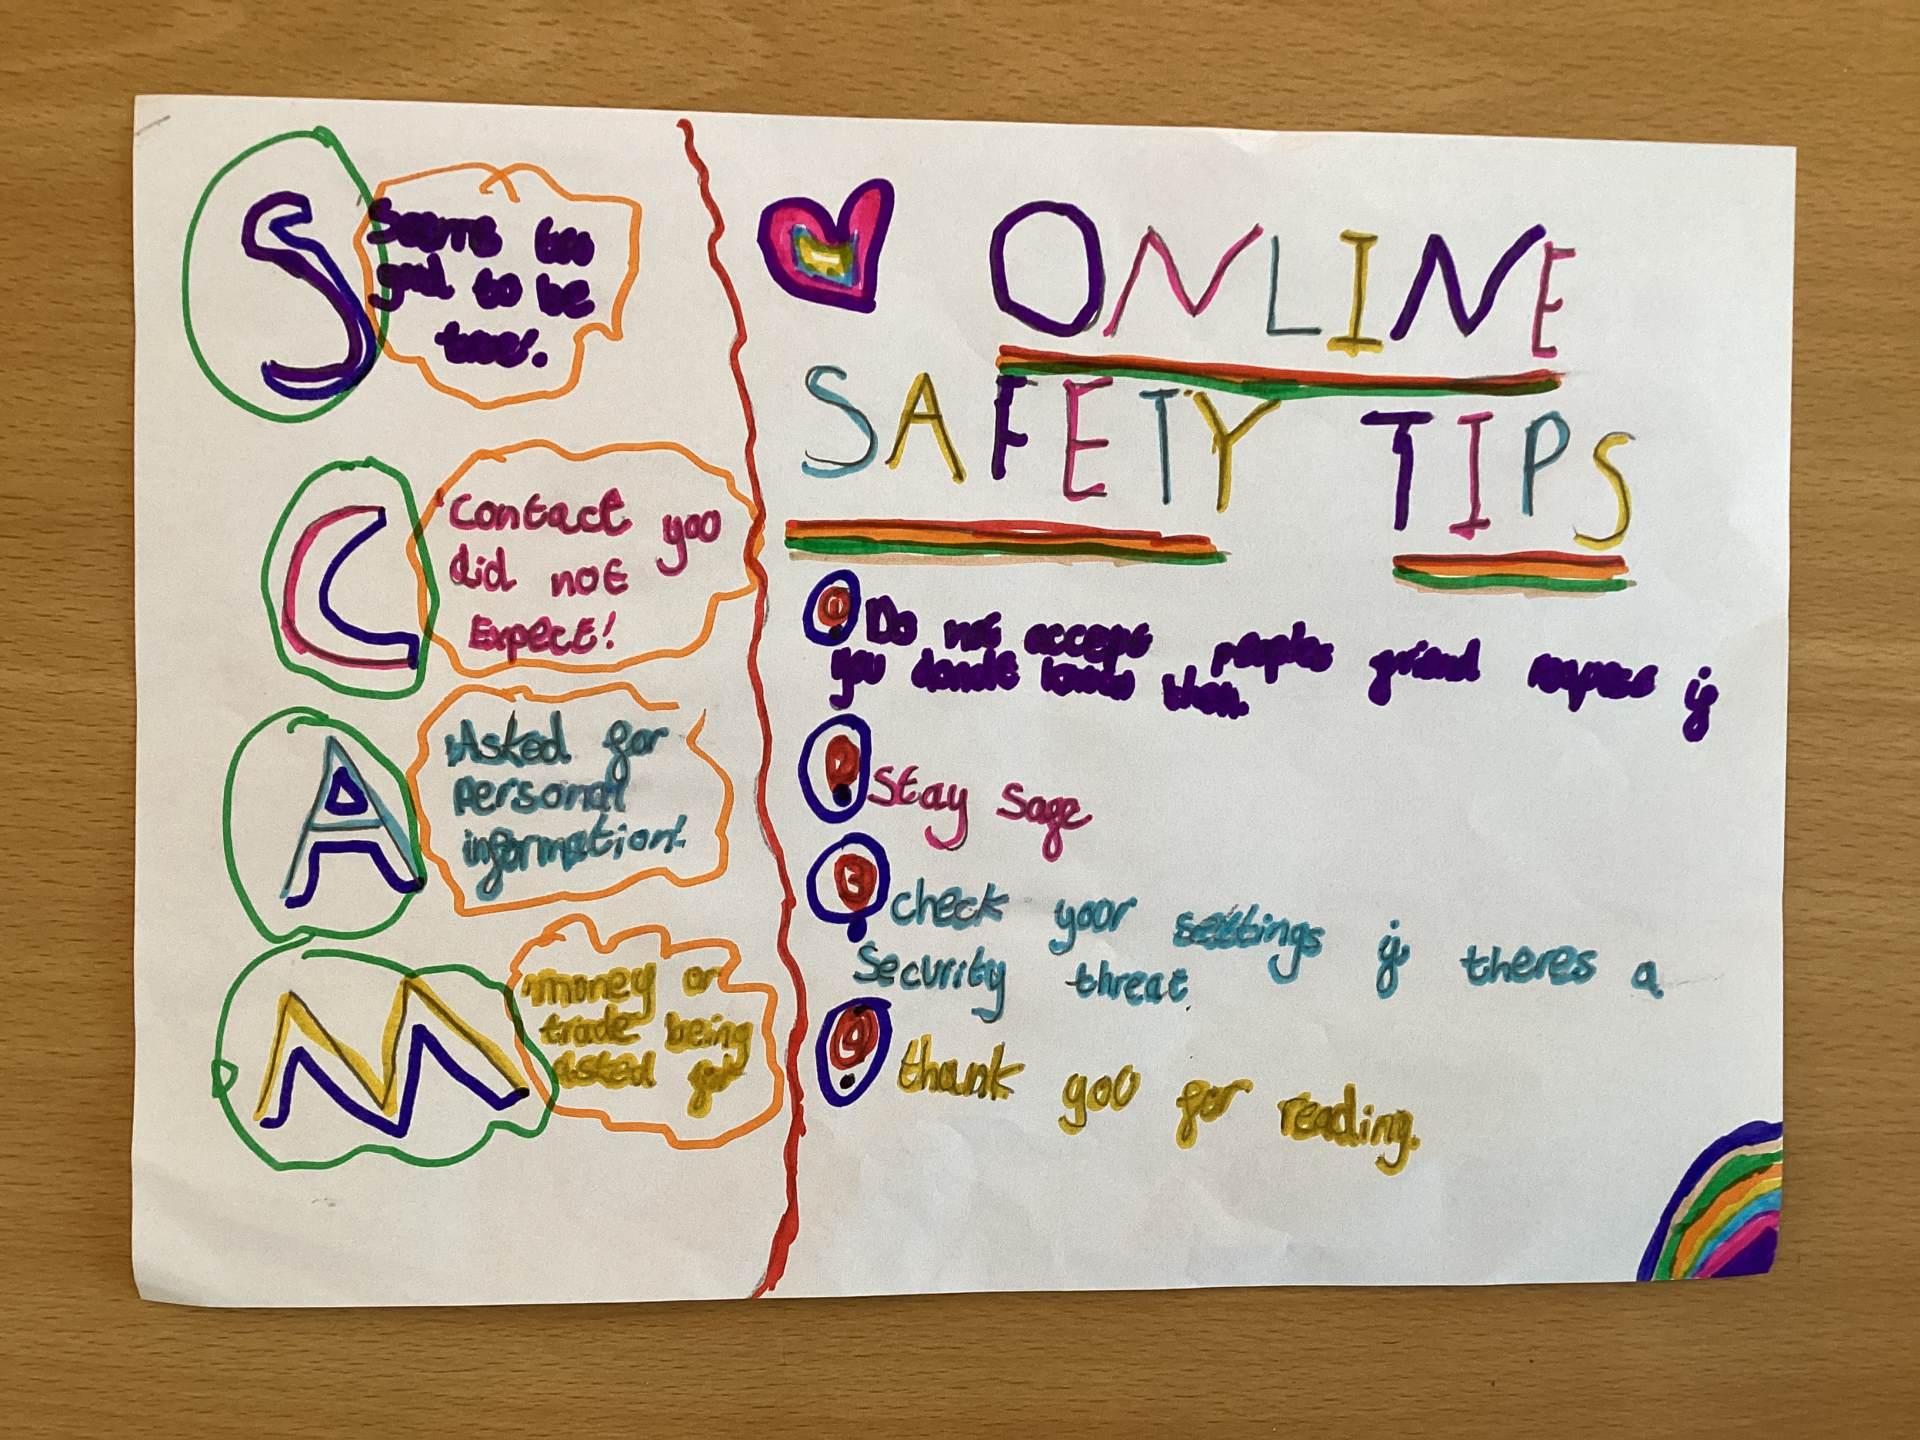 S
Seems too
good to be
true!.
C
Contact you
did not
Expect!
A
Asked for
personal
information!
M
money or
trade being
asked for
ONLINE
SAFETY TIPS
1. Do not accept peoples friend request if
you dondt know them.
2. Stay safe
3. check your settings if theres a
Security threat
4. thank you for reading.